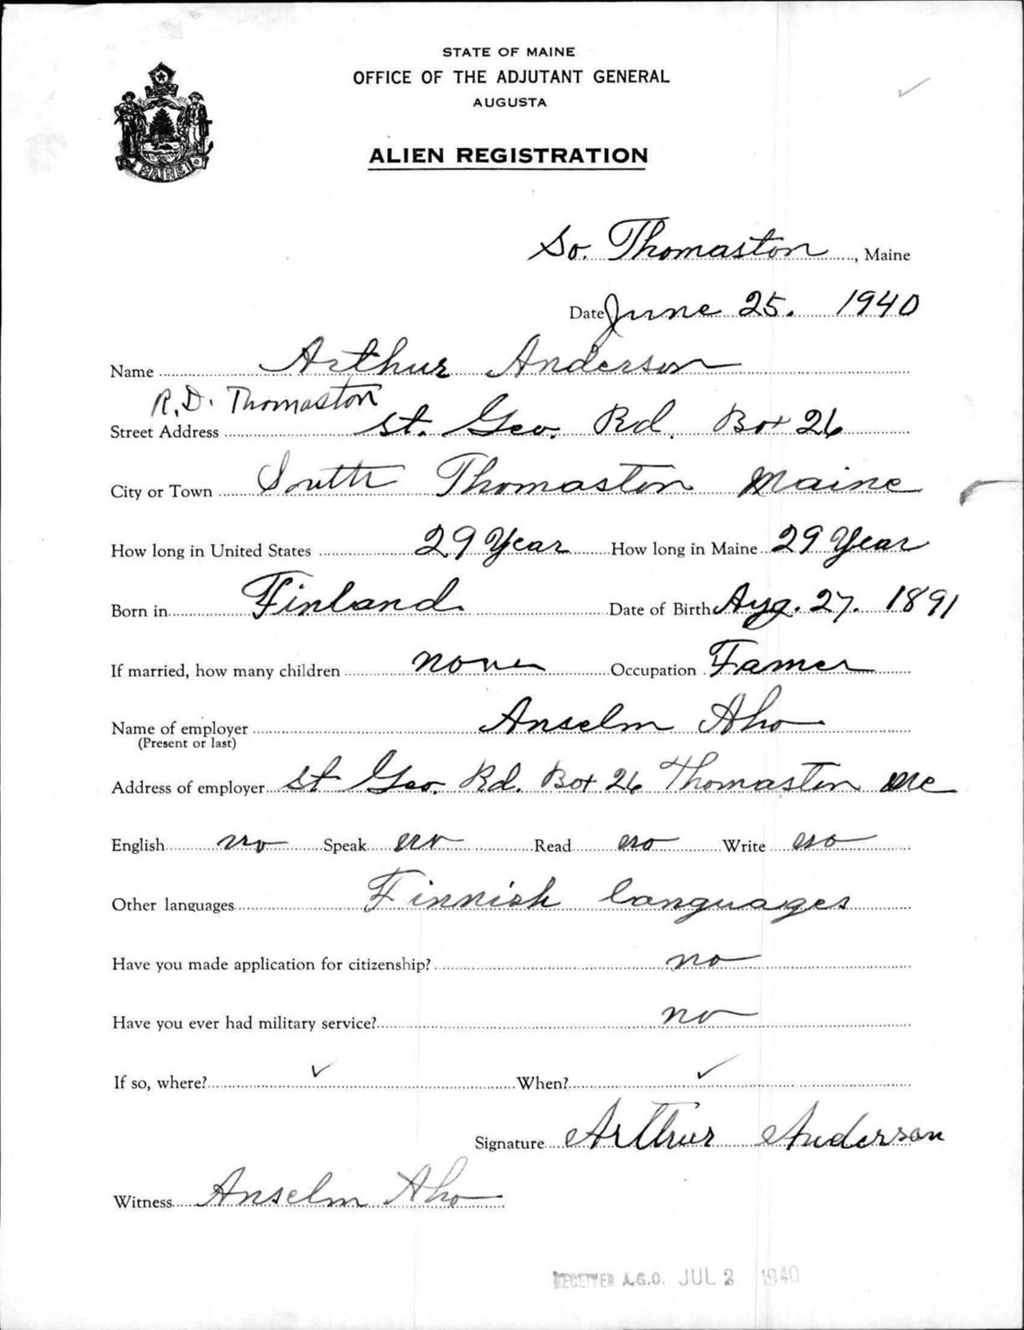 STATE OF MAINE
OFFICE OF THE ADJUTANT GENERAL
AUGUSTA
ALIEN REGISTRATION
MAINE
So. Thomaston, Maine
Date June 25. 1940
Name Arthur Anderson
R.D. Thomaston
Street Address St. Geo. Rd. Box 26
City or Town South Thomaston Maine
How long in United States 29 Year How long in Maine 29 Year
Born in Finland Date of Birth Aug. 27. 1891
If married, how many children none Occupation Famer
Name of employer Anselm Aho
(Present or last)
Address of employer St Geo. Rd. Box 26 Thomaston Me
English no Speak no Read no Write no
Other languages Finnish languages
Have you made application for citizenship? no
Have you ever had military service? no
If so, where? ✓ When? ✓
Signature Arthur Anderson
Witness Anselm Aho
RECEIVED A.G.O. JUL 2 1940